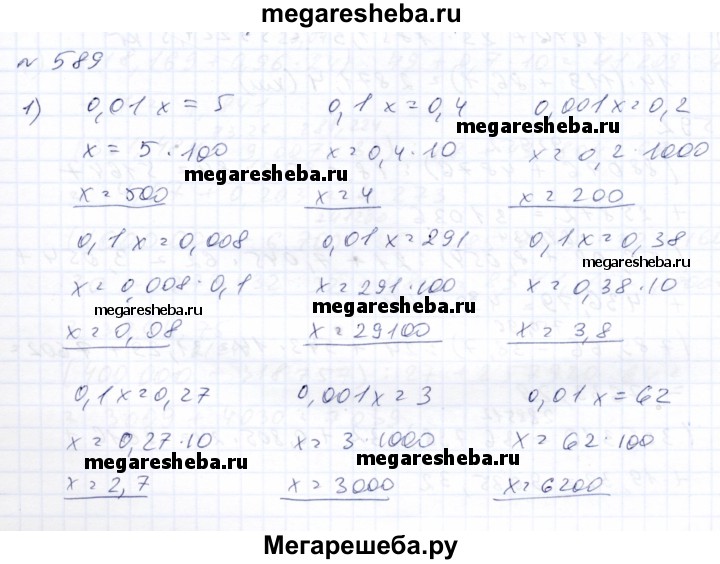 megaresheba.ru
N 589
1) 0,01x = 5 0,1x = 0,4 0,001x = 0,2
megaresheba.ru
x = 5 · 100 x = 0,4 · 10 x = 0,2 · 1000
megaresheba.ru
x = 500 x = 4 x = 200
0,1x = 0,008 0,01x = 291 0,1x = 0,38
megaresheba.ru
x = 0,008 · 0,1 x = 291 · 100 x = 0,38 · 10
megaresheba.ru megaresheba.ru
x = 0,08 x = 29100 x = 3,8
0,1x = 0,27 0,001x = 3 0,01x = 62
x = 0,27 · 10 x = 3 · 1000 x = 62 · 100
megaresheba.ru megaresheba.ru
x = 2,7 x = 3000 x = 6200
Мегарешеба.ру